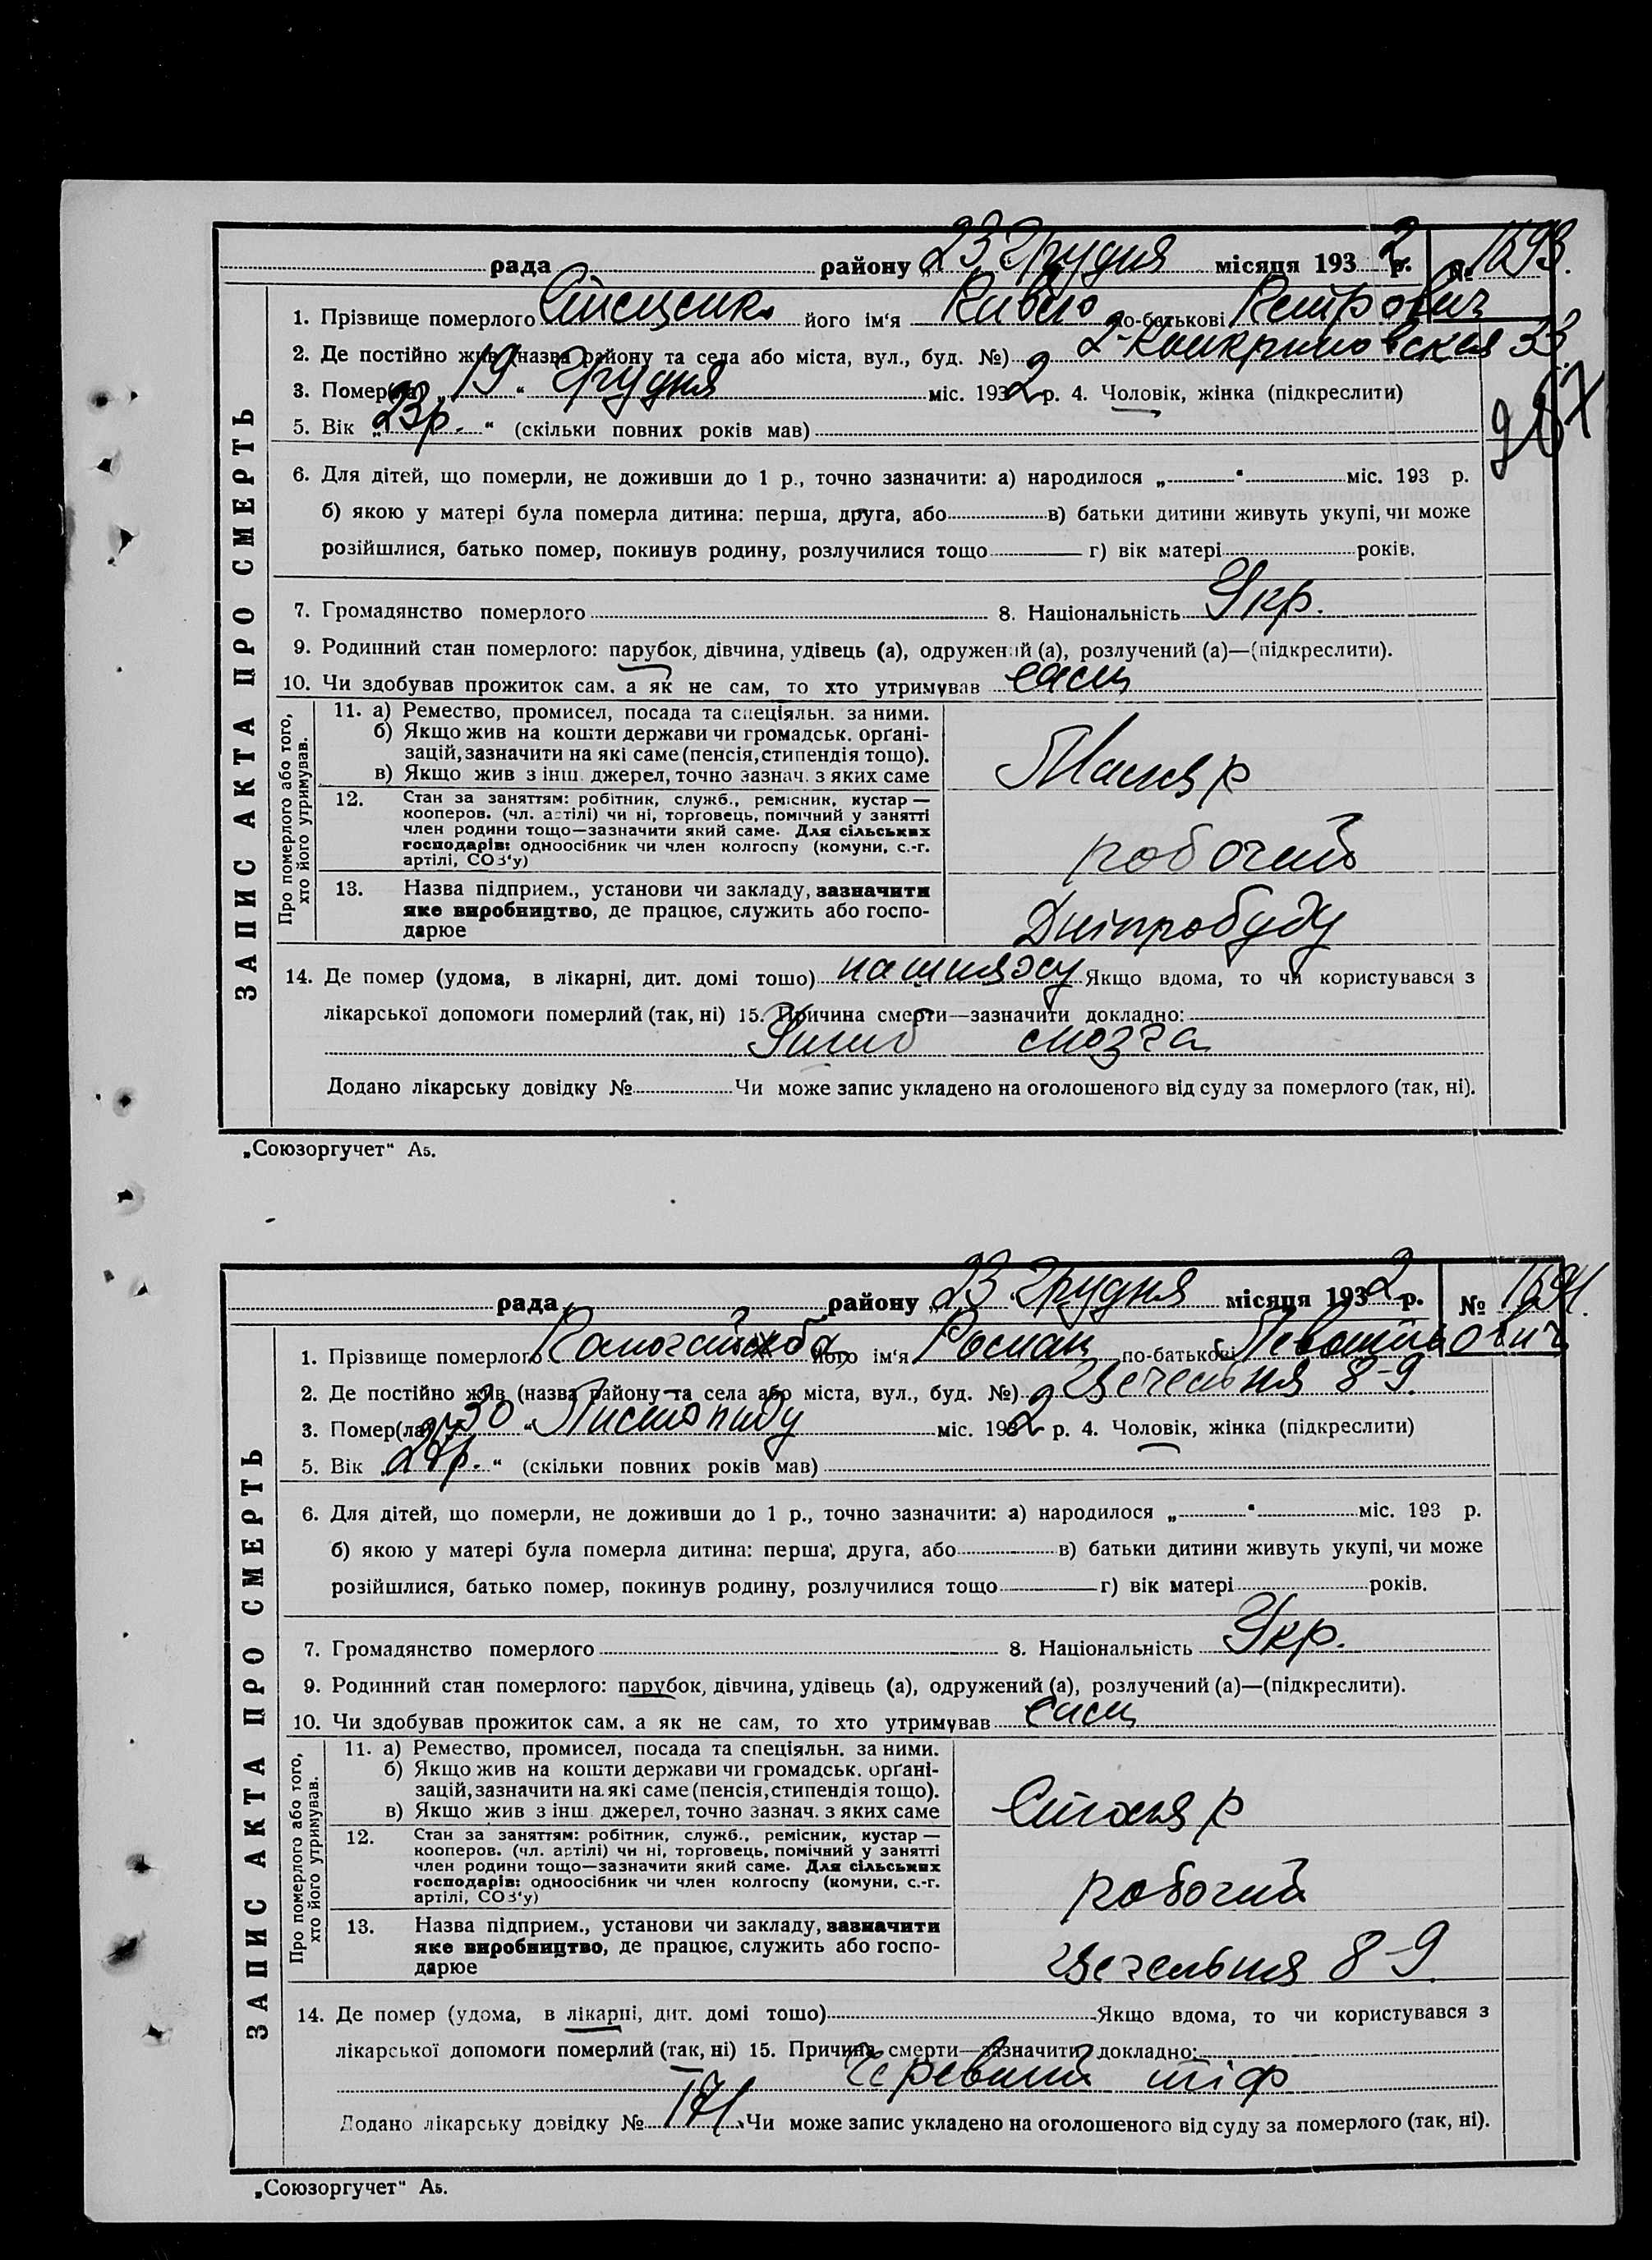 рада районy „23“ Грудня місяця 1932 р. № 1593.
1. Прізвище померлого його ім'я Павло по-батькові Петрович
2. Де постійно жив (назва району та села або міста, вул., буд. №) 33
3. Помер(ла) „19“ Грудня міс. 1932 р. 4. Чоловік, жінка (підкреслити)
5. Вік „23р.“ (скільки повних років мав)
6. Для дітей, що померли, не доживши до 1 р., точно зазначити: а) народилося „ “ міс. 193 р.
б) якою у матері була померла дитина: перша, друга, або в) батьки дитини живуть укупі, чи може
розійшлися, батько помер, покинув родину, розлучилися тощо г) вік матері років.
7. Громадянство померлого 8. Національність Укр.
9. Родинний стан померлого: парубок, дівчина, удівець (а), одружений (а), розлучений (а)—(підкреслити).
10. Чи здобував прожиток сам, а як не сам, то хто утримував сам
ЗАПИС АКТА ПРО СМЕРТЬ
Про померлого або того, хто його утримував.
11. а) Ремество, промисел, посада та спеціяльн. за ними.
б) Якщо жив на кошти держави чи громадськ. органі-
зацій, зазначити на які саме (пенсія, стипендія тощо).
в) Якщо жив з інш. джерел, точно зазнач. з яких саме
Маляр
12. Стан за заняттям: робітник, служб., ремісник, кустар —
кооперов. (чл. артілі) чи ні, торговець, помічний у занятті
член родини тощо—зазначити який саме. Для сільських
господарів: одноосібник чи член колгоспу (комуни, с.-г.
артілі, СОЗ'у)
робочий
13. Назва підприєм., установи чи закладу, зазначити
яке виробництво, де працює, служить або госпо-
дарює
Дніпробуду
14. Де помер (удома, в лікарні, дит. домі тошо) на шляху Якщо вдома, то чи користувався з
лікарської допомоги померлий (так, ні) 15. Причина смерти—зазначити докладно:
Ушиб мозга
Додано лікарську довідку № Чи може запис укладено на оголошеного від суду за померлого (так, ні).
„Союзоргучет“ А5.
рада району „23“ Грудня місяця 1932 р. № 1594.
1. Прізвище померлого його ім'я Роман по-батькові
2. Де постійно жив (назва району та села або міста, вул., буд. №) 8-9.
3. Помер(ла) „30“ Листопаду міс. 1932 р. 4. Чоловік, жінка (підкреслити)
5. Вік „ “ (скільки повних років мав)
6. Для дітей, що померли, не доживши до 1 р., точно зазначити: а) народилося „ “ міс. 193 р.
б) якою у матері була померла дитина: перша, друга, або в) батьки дитини живуть укупі, чи може
розійшлися, батько помер, покинув родину, розлучилися тощо г) вік матері років.
7. Громадянство померлого 8. Національність Укр.
9. Родинний стан померлого: парубок, дівчина, удівець (а), одружений (а), розлучений (а)—(підкреслити).
10. Чи здобував прожиток сам, а як не сам, то хто утримував сам
ЗАПИС АКТА ПРО СМЕРТЬ
Про померлого або того, хто його утримував.
11. а) Ремество, промисел, посада та спеціяльн. за ними.
б) Якщо жив на кошти держави чи громадськ. органі-
зацій, зазначити на які саме (пенсія, стипендія тощо).
в) Якщо жив з інш. джерел, точно зазнач. з яких саме
Столяр
12. Стан за заняттям: робітник, служб., ремісник, кустар —
кооперов. (чл. артілі) чи ні, торговець, помічний у занятті
член родини тощо—зазначити який саме. Для сільських
господарів: одноосібник чи член колгоспу (комуни, с.-г.
артілі, СОЗ'у)
робочий
13. Назва підприєм., установи чи закладу, зазначити
яке виробництво, де працює, служить або госпо-
дарює
8-9.
14. Де помер (удома, в лікарні, дит. домі тошо) Якщо вдома, то чи користувався з
лікарської допомоги померлий (так, ні) 15. Причина смерти—зазначити докладно:
Черевний тіф
Додано лікарську довідку № 171 Чи може запис укладено на оголошеного від суду за померлого (так, ні).
„Союзоргучет“ А5.